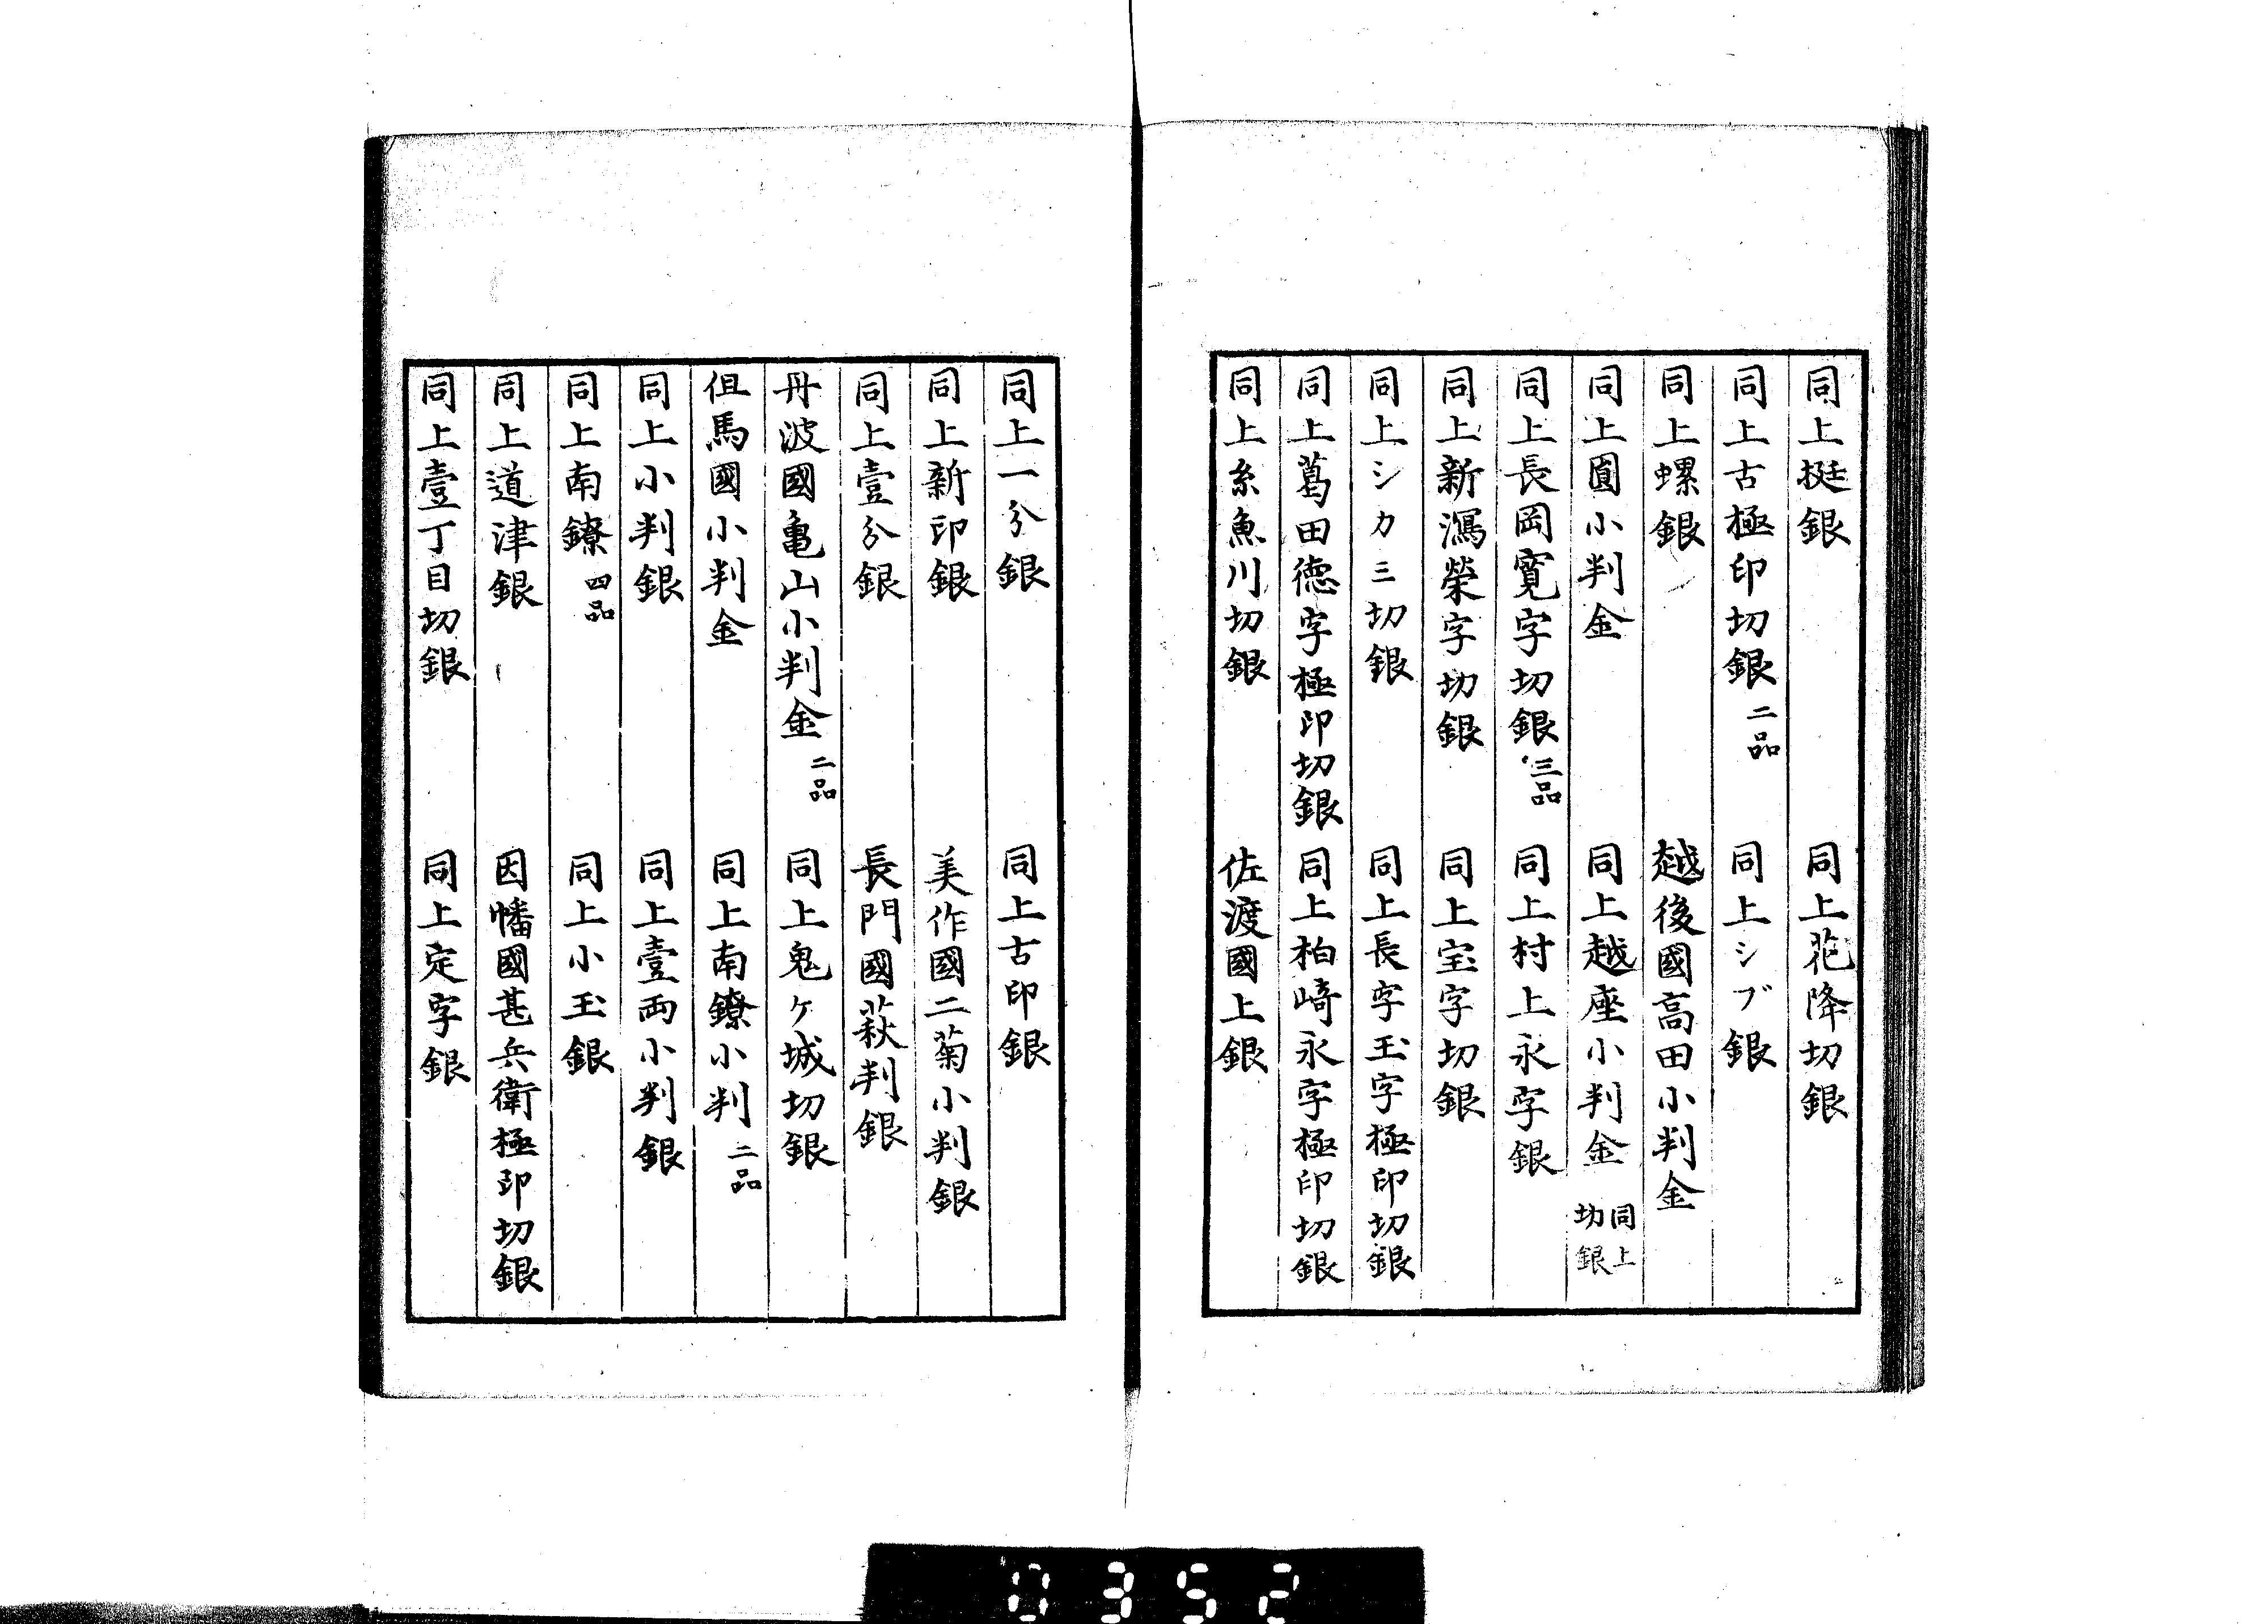 同上挺銀　同上花降切銀
同上古極印切銀 二品　同上シブ銀
同上螺銀　越後國高田小判金
同上圓小判金　同上越座小判金 同上切銀
同上長岡寛字切銀 三品　同上村上永字銀
同上新潟榮字切銀　同上宝字切銀
同上シカミ切銀　同上長字玉字極印切銀
同上葛田徳字極印切銀　同上柏崎永字極印切銀
同上糸魚川切銀　佐渡國上銀
同上一分銀　同上古印銀
同上新印銀　美作國二菊小判銀
同上壹分銀　長門國萩判銀
丹波國亀山小判金 二品　同上鬼ヶ城切銀
但馬國小判金　同上南鐐小判 二品
同上小判銀　同上壹両小判銀
同上南鐐 四品　同上小玉銀
同上道津銀　因幡國甚兵衛極印切銀
同上壹丁目切銀　同上定字銀
0352